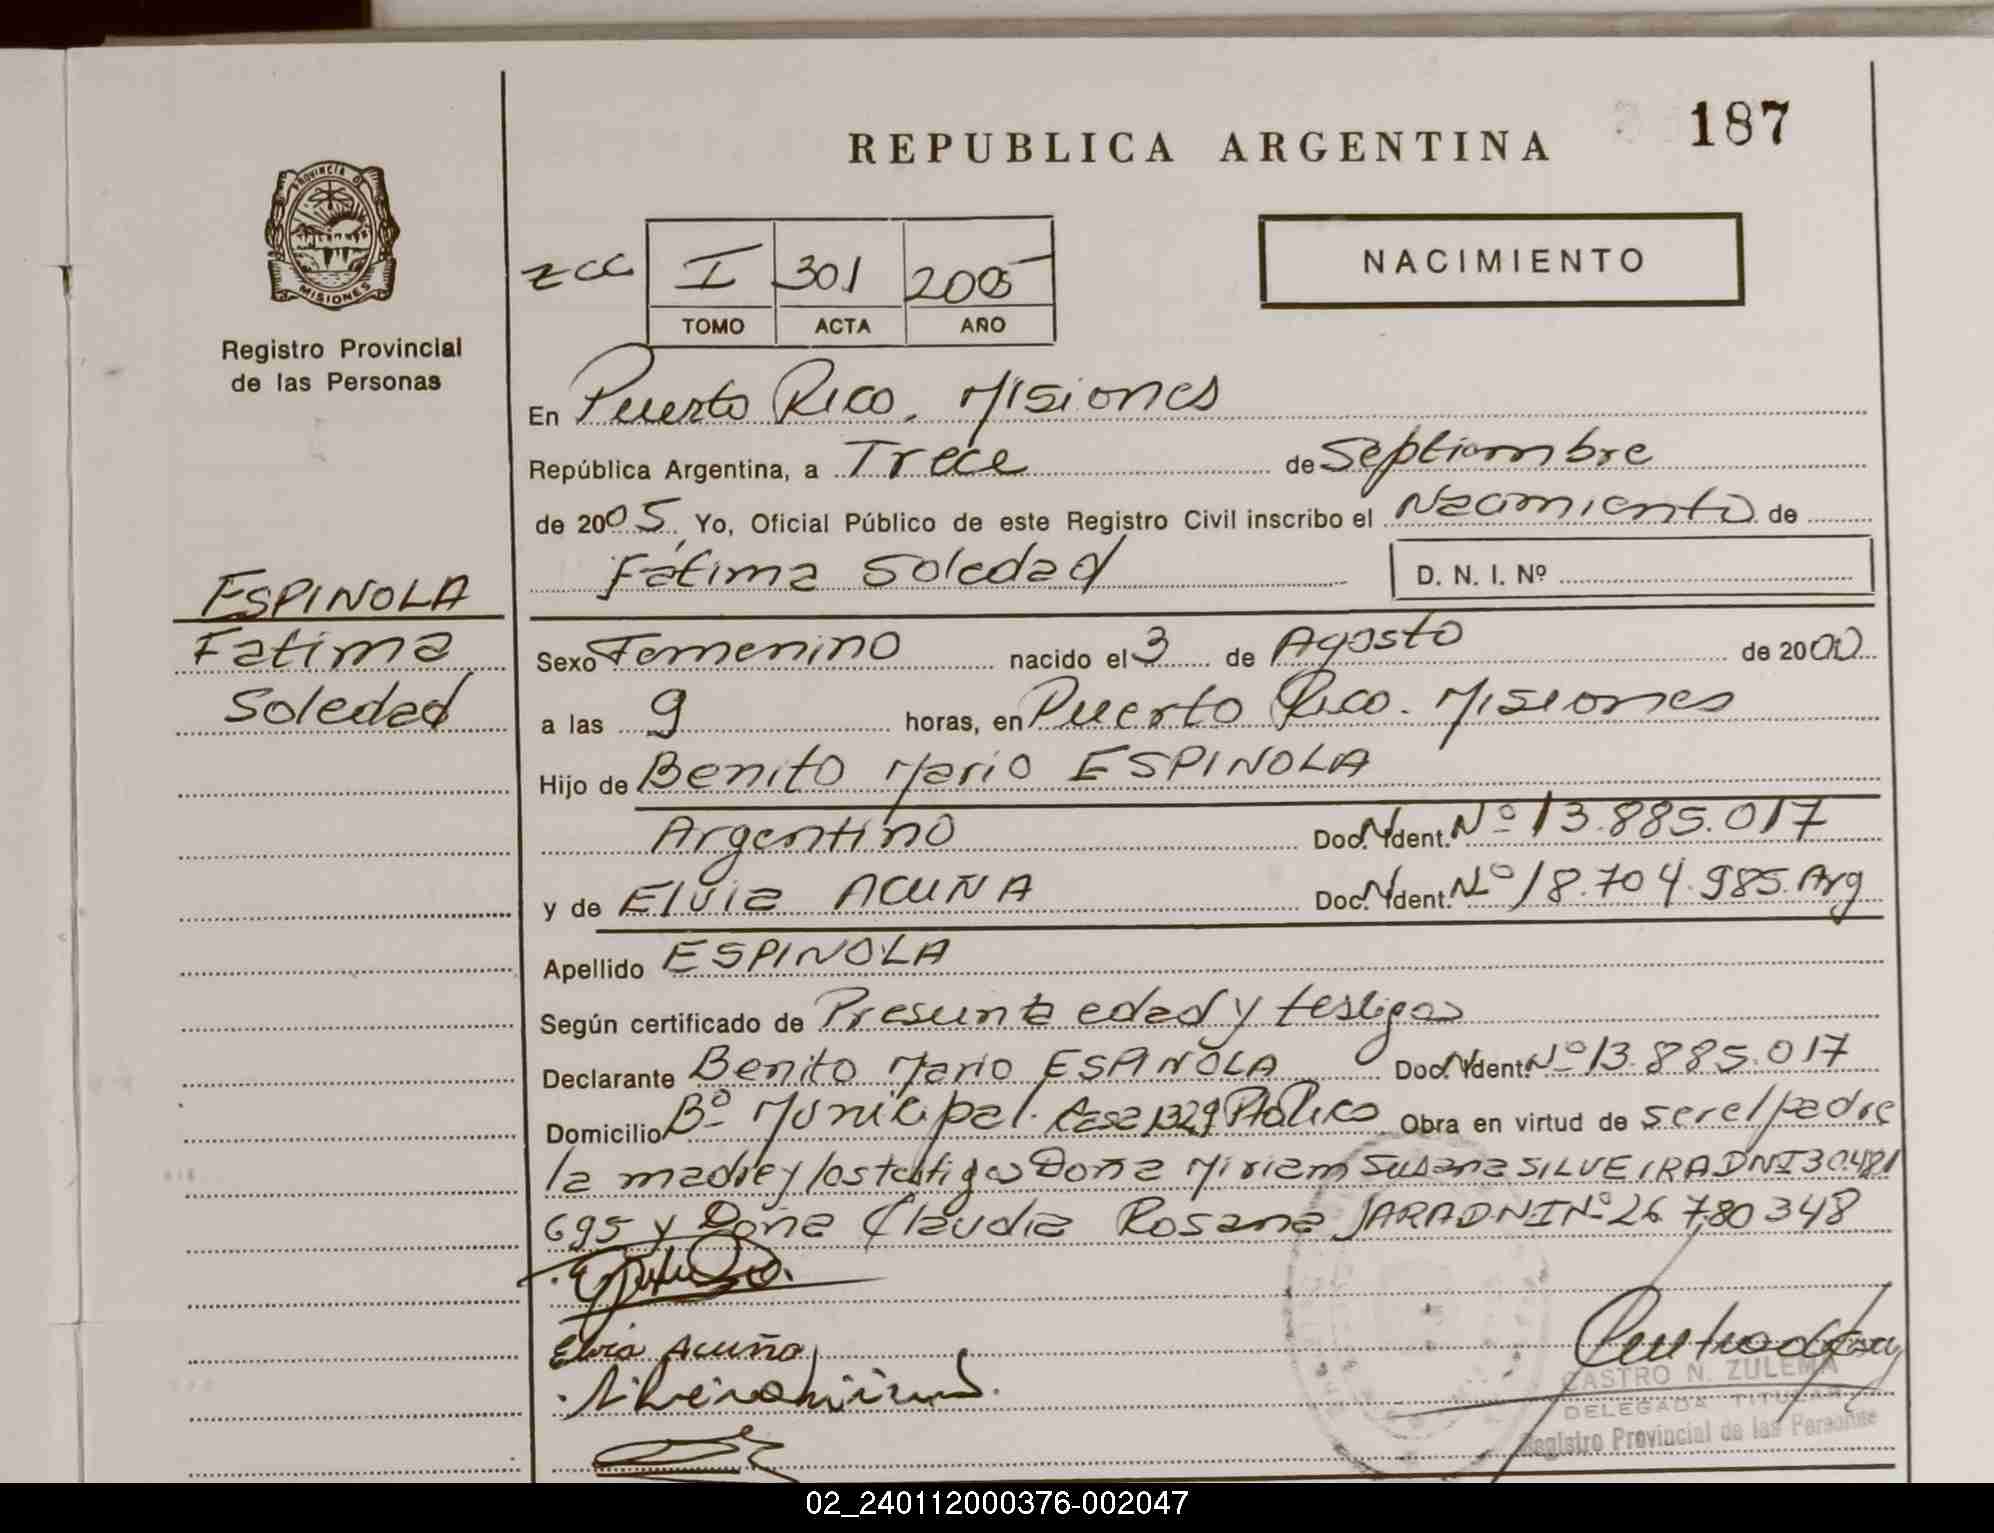 REPUBLICA ARGENTINA
187
PROVINCIA DE
MISIONES
Registro Provincial
de las Personas
zcc
I 301 2005
TOMO ACTA AÑO
NACIMIENTO
En Puerto Rico. Misiones
República Argentina, a Trece de Septiembre
de 2005. Yo, Oficial Público de este Registro Civil inscribo el Nacimiento de
Fátima Soledad D. N. I. Nº
ESPINOLA
Fatima
Soledad
Sexo Femenino nacido el 3 de Agosto de 2000
a las 9 horas, en Puerto Rico. Misiones
Hijo de Benito Mario ESPINOLA
Argentino Doc. N. Ident. Nº 13.885.017
y de Elvia ACUÑA Doc. N. Ident. Nº 18.704.985. Arg
Apellido ESPINOLA
Según certificado de Presunta edad y testigos
Declarante Benito Mario ESPINOLA Doc. N. Ident. Nº 13.885.017
Domicilio Bº Municipal. Casa 1329 Pto Rico Obra en virtud de ser el padre
la madre y los testigos Doña Miriam Susana SILVEIRA DNI 30.481
695 y Doña Claudia Rosana JARA DNI Nº 26 780 348
Elvia Acuña
CASTRO N. ZULEMA
DELEGADA TITULAR
Registro Provincial de las Personas
02_240112000376-002047